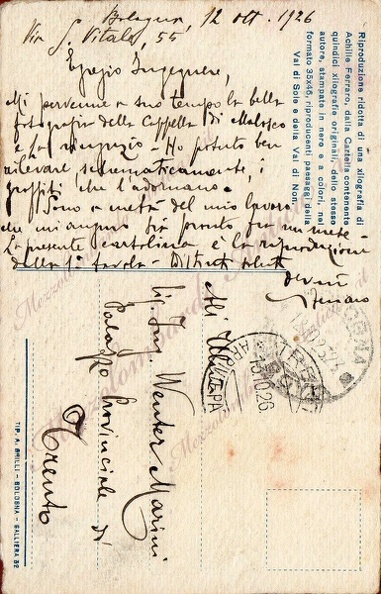 Bologna, 12 ott. 1926
Via S. Vitale, 55
Egregio Ingegnere,
Mi pervenne a suo tempo la bella
fotografia della Cappella di Malosco
e la ringrazio - Ho potuto ben
rilevare schematicamente, i
graffiti che l'adornano.
Sono a metà del mio lavoro
che mi auguro sia pronto fra un mese
La presente cartolina è la riproduzione
della 1ª tavola - Distinti saluti
Ferraro
Riproduzione ridotta di una xilografia di
Achille Ferraro, dalla Cartella contenente
quindici xilografie originali, dello stesso
autore, stampate in nero e a colori, nel
formato 35x45 riproducenti paesaggi della
Val di Sole e della Val di Non.
Sig. Ing. Wenter Marini
Palazzo Provinciale di
Trento
15.10.26
TIP. A. BRILLI - BOLOGNA - GALLIERA 52
Mezzolombardo